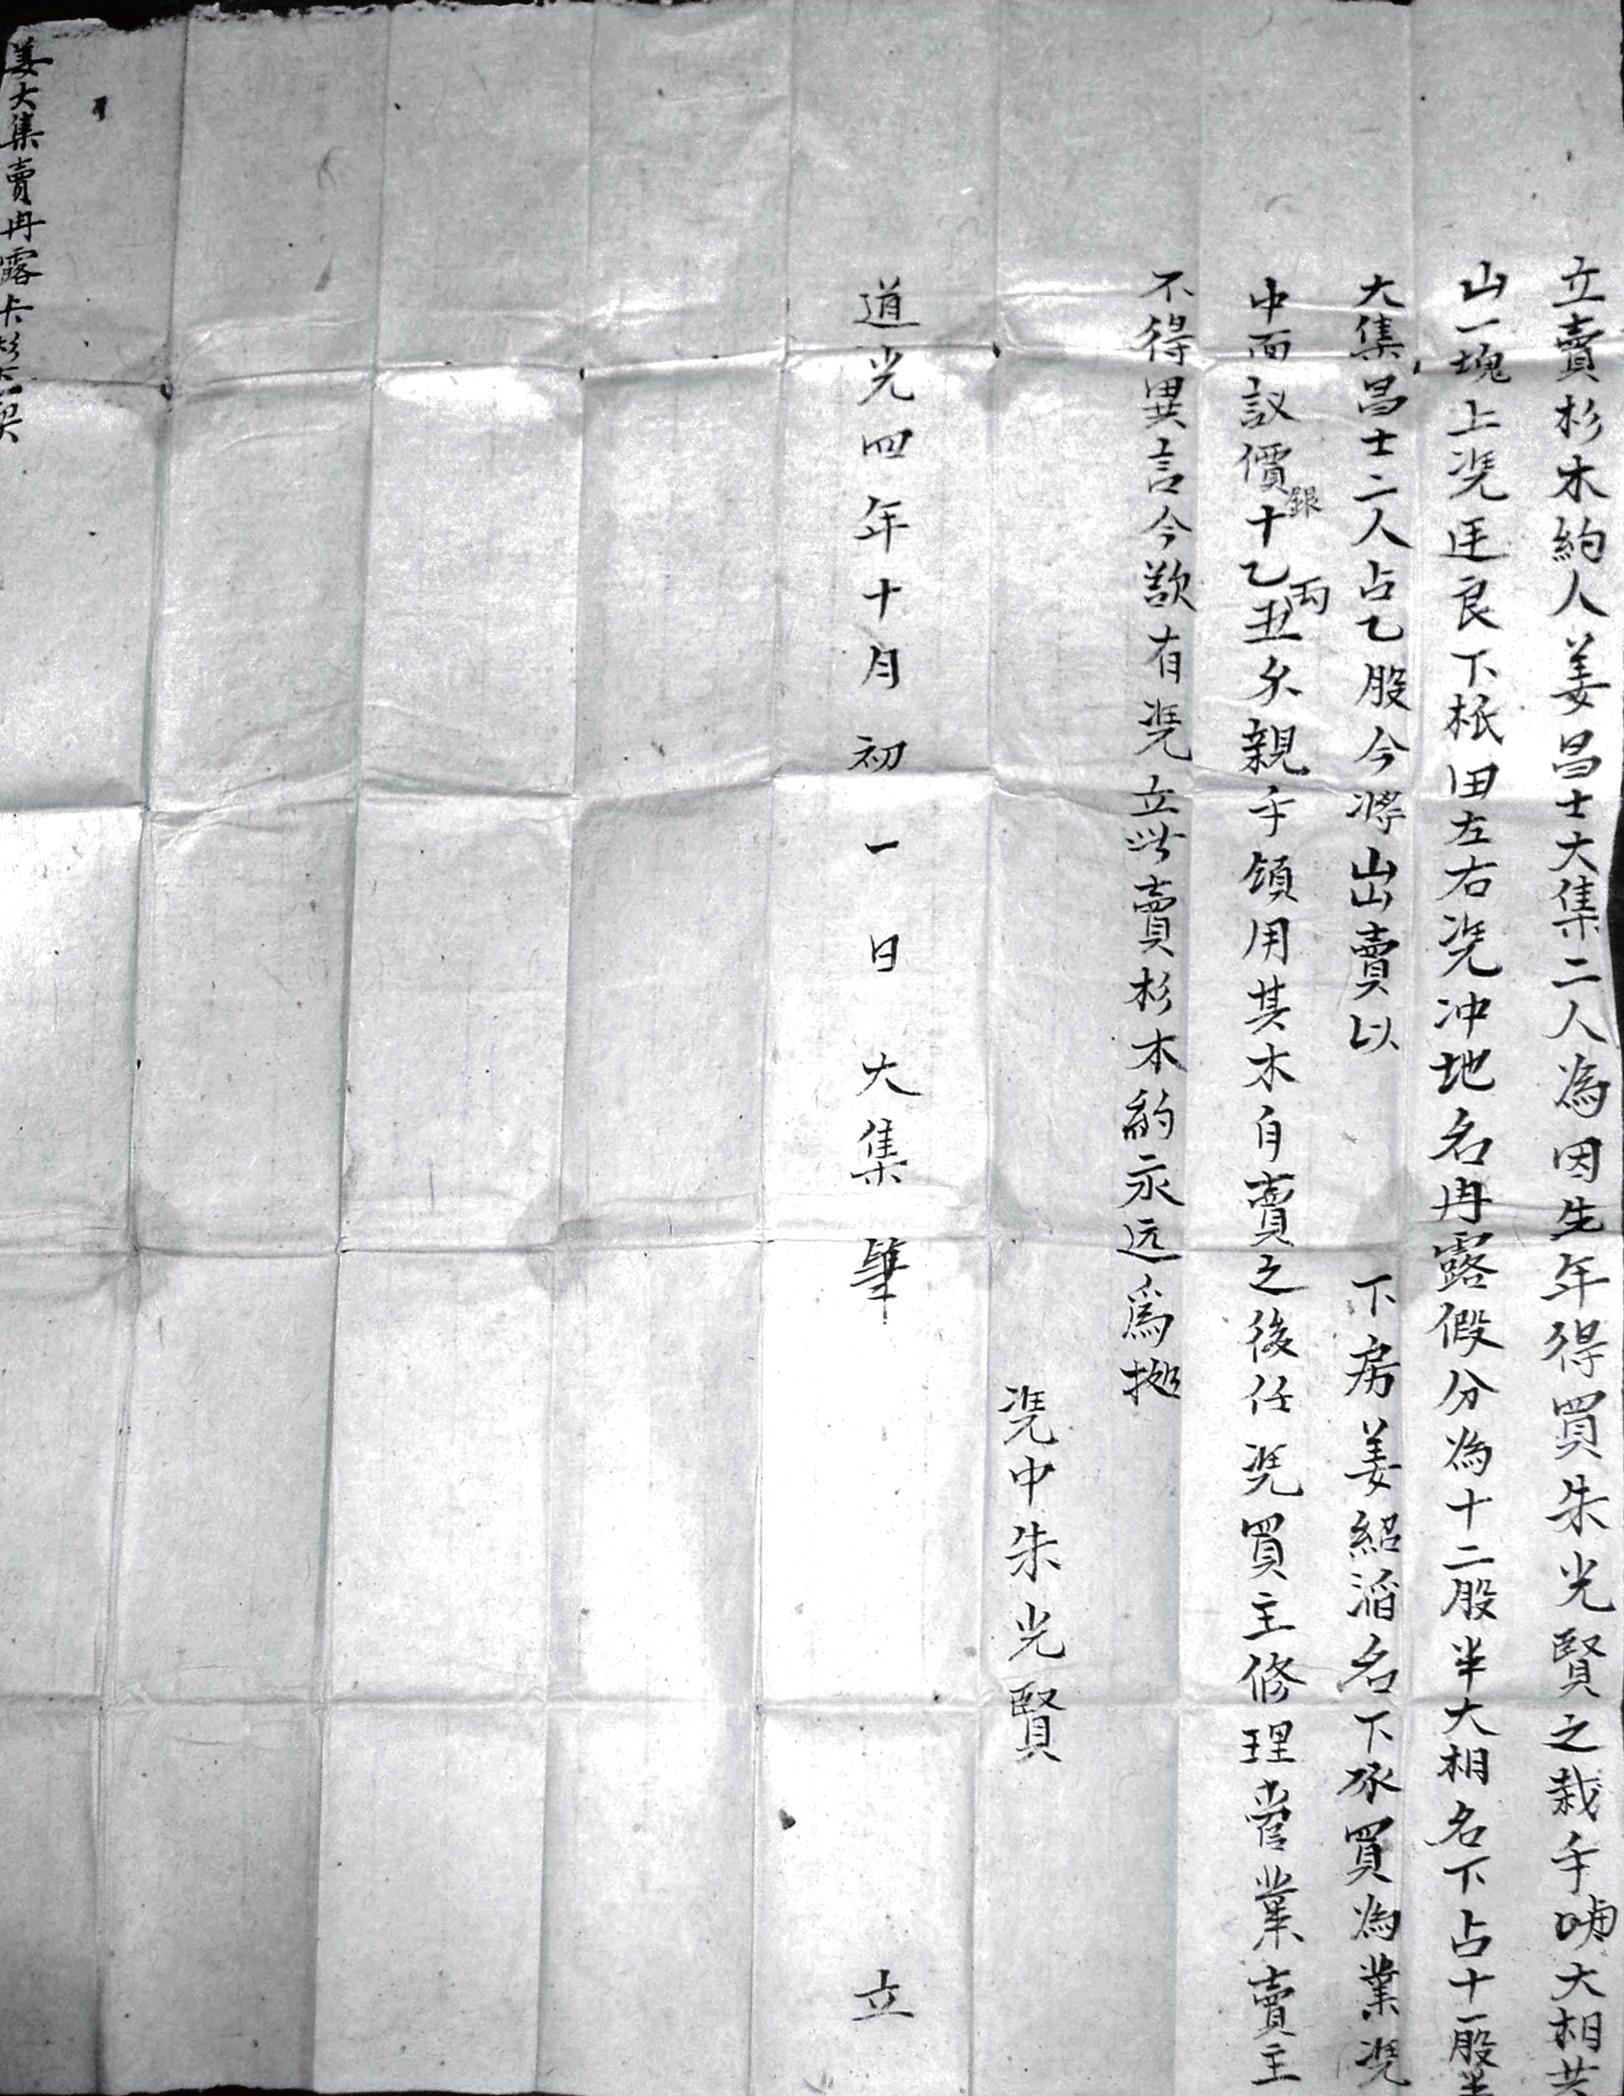 立賣杉木約人姜昌士大集二人為因先年得買朱光賢之栽手唎大相共
山一塊上凴迋良下柢田左右凴冲地名冉露假分為十二股半大相名下占十一股半
大集昌士二人占乙股今將山出賣以 下房姜紹滔名下承買為業凴
中面議價銀十乙両丑分親手領用其木自賣之後任凴買主修理管業賣主
不得異言今欲有凴立此賣杉木約永远為據
凴中朱光賢
道光四年十月初一日 大集筆 立
姜大集賣冉露卡杉木契